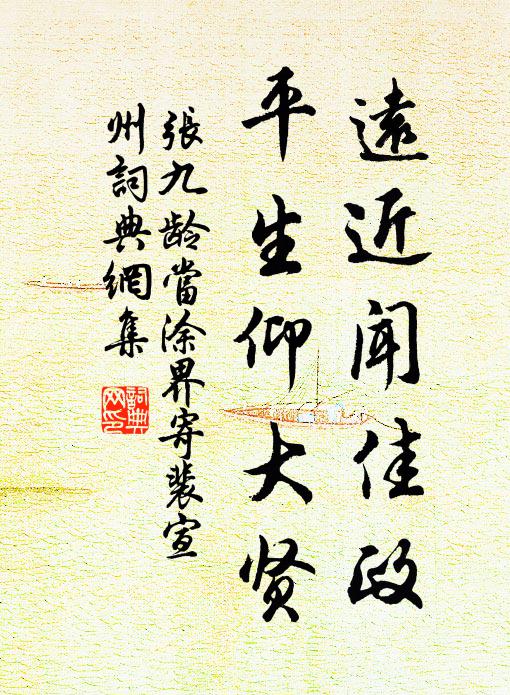 遠近聞佳政
平生仰大贤
張九龄當涂界寄裴宣
州詞典網集
詞典
网印